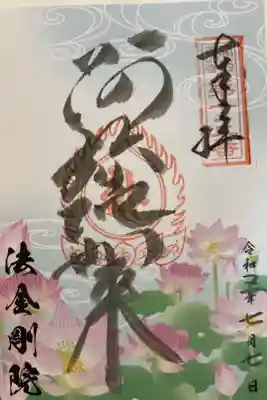 奉拝
阿弥陀如来
令和 年七月七日
法金剛院